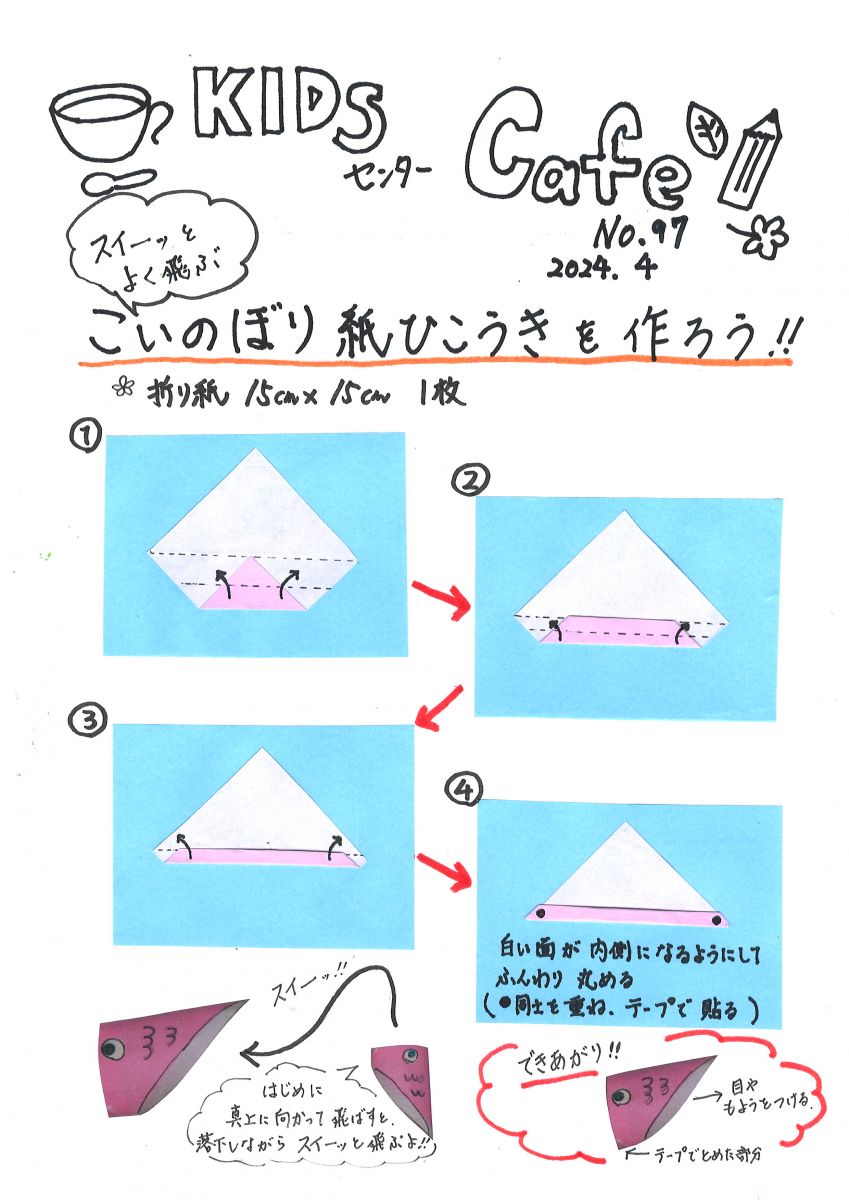 KIDS
センター
Cafe
No.97
2024.4
スイーッと
よく飛ぶ
こいのぼり紙ひこうきを作ろう!!
折り紙 15cm×15cm 1枚
①
②
③
④
白い面が内側になるようにして
ふんわり丸める
(●同士を重ね、テープで貼る)
スイーッ!!
はじめに
真上に向かって飛ばすと、
落下しながらスイーッと飛ぶよ!!
できあがり!!
→目や
もようをつける。
←テープでとめた部分